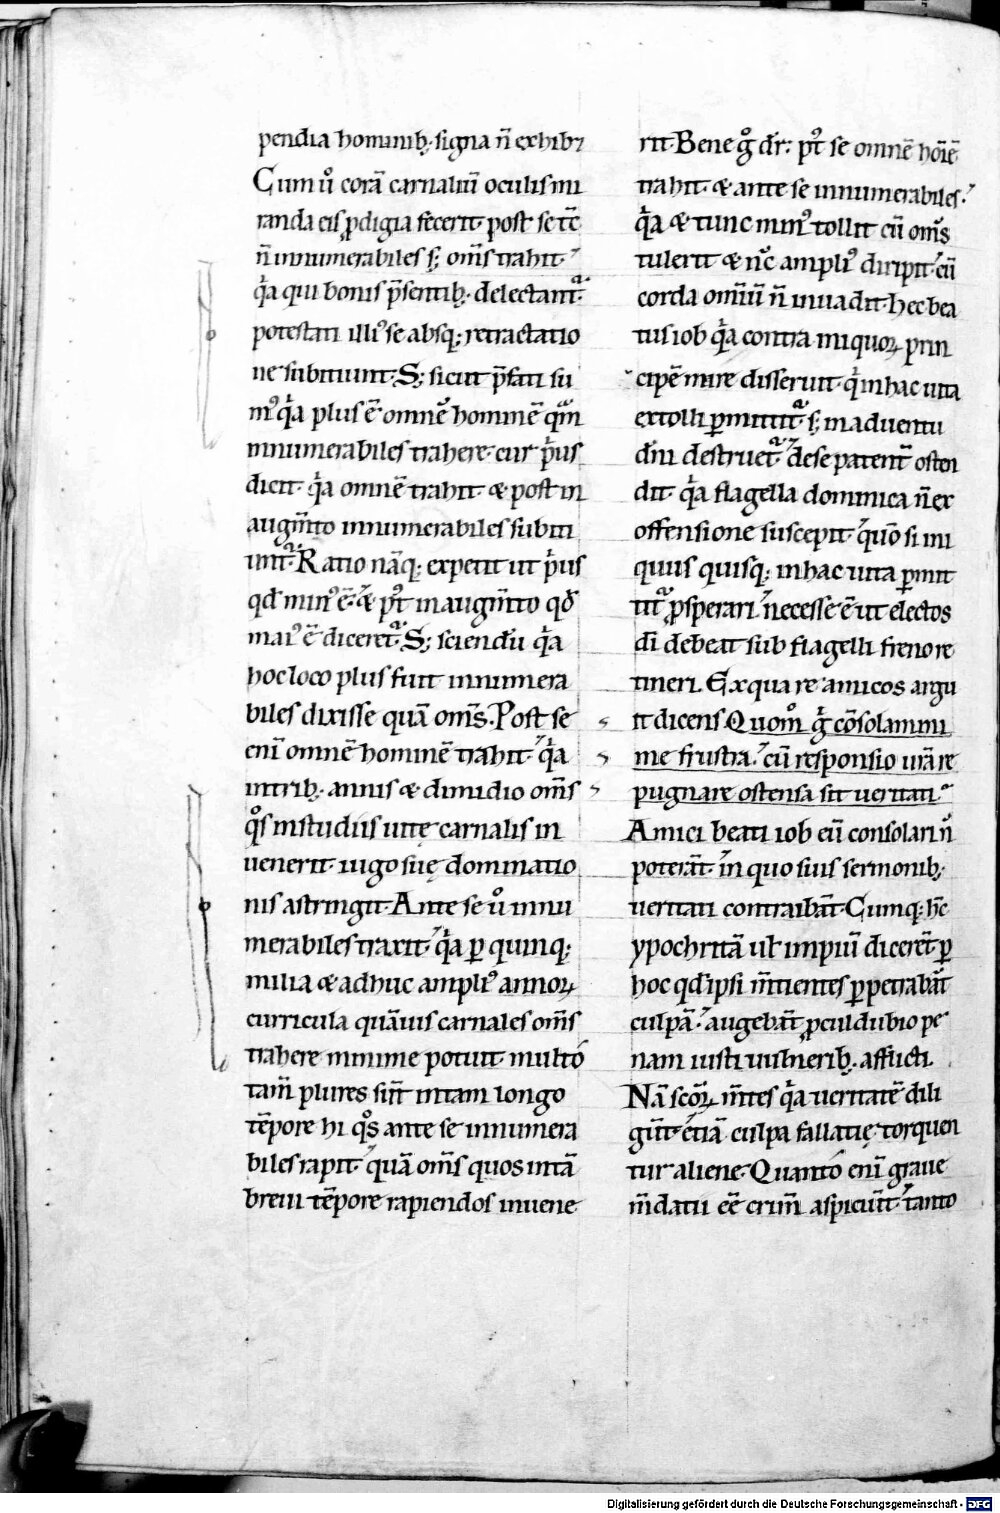 pendia hominib; signa n̄ exhibꝫ
Cum ů corā carnaliū oculis mi
randa eis ꝓdigia fecerit· post se tc̄
n̄ innumerabiles s; om̄s trahit·
q̇a qui bonis p̄sentib; delectant᷑·
potestati illiꝰ se absq; retractatio
ne subitiunt· S; sicut p̄fati su
mꝰ q̇a plus ē omnē hominē qͣm
innumerabiles trahere· cur ṗus
dicit· q̇a omnē trahit· & post in
augm̄to innumerabiles subiti
unt᷑· Ratio nāq; expetit ut ṗus
qd̄ minꝰ ē· & pꝰt in augm̄to qd̄
maiꝰ ē diceret᷑· S; sciendū q̇a
hoc loco plus fuit innumera
biles dixisse quā om̄s· Post se
eni᷑ omnē hominē trahit· q̇a
in trib; annis & dimidio om̄s
qͦs in studiis uitę carnalis in
uenerit· iugo suę dominatio
nis astringit· Ante se ů innu
merabiles traxit· q̇a ꝑ quinq;
milia & adhuc ampliꝰ annoꝝ
curricula quāuis carnales om̄s
trahere minime potuit· multo
tam̄ plures sūt in tam longo
tēpore hi qͦs ante se innumera
biles rapit· quā om̄s quos in tā
breui tēpore rapiendos inuene
rit· Bene g̊ dr̄· pꝰt se omnē hoīē
trahit· & ante se innumerabiles·
q̇a & tunc minꝰ tollit cū om̄s
tulerit & nc̄ ampliꝰ diripit· cū
corda omīū n̄ inuadit· Hec bea
tus iob q̇a contra iniquoꝝ prin
cipē mire disseruit· q̇ in hac uita
extolli ꝑmittit᷑· s; in aduentu
dn̄i destruet᷑· de se patent̄ osten
dit· q̇a flagella dominica n̄ ex
offensione suscepit· quō si ini
quus quisq; in hac uita ꝑmit
tit᷑ ꝓsperari· necesse ē ut electos
di᷑ debeat sub flagelli freno re
tineri· Ex qua re amicos argu
it dicens· Quom̊ g̊ cōsolamini
me frustra· cū responsio ur̄a re
pugnare ostensa sit ueritati·
Amici beati iob eū consolari n̄
poterāt· in quo suis sermonib;
ueritati contraibāt· Cumq; hc̄
ypochritā ul̄ impiū dicerēt· ꝑ
hoc qd̄ ipsi m̄tientes ꝑpetrabāt
culpā· augebāt ꝓculdubio pe
nam iusti uulnerib; afflicti·
Nā scōꝝ m̄tes q̇a ueritatē dili
gūt· etiā culpa fallatię torquen
tur aliene· Quanto eni᷑ graue
m̄datii eē crim̄ aspiciūt· tanto
Digitalisierung gefördert durch die Deutsche Forschungsgemeinschaft - DFG